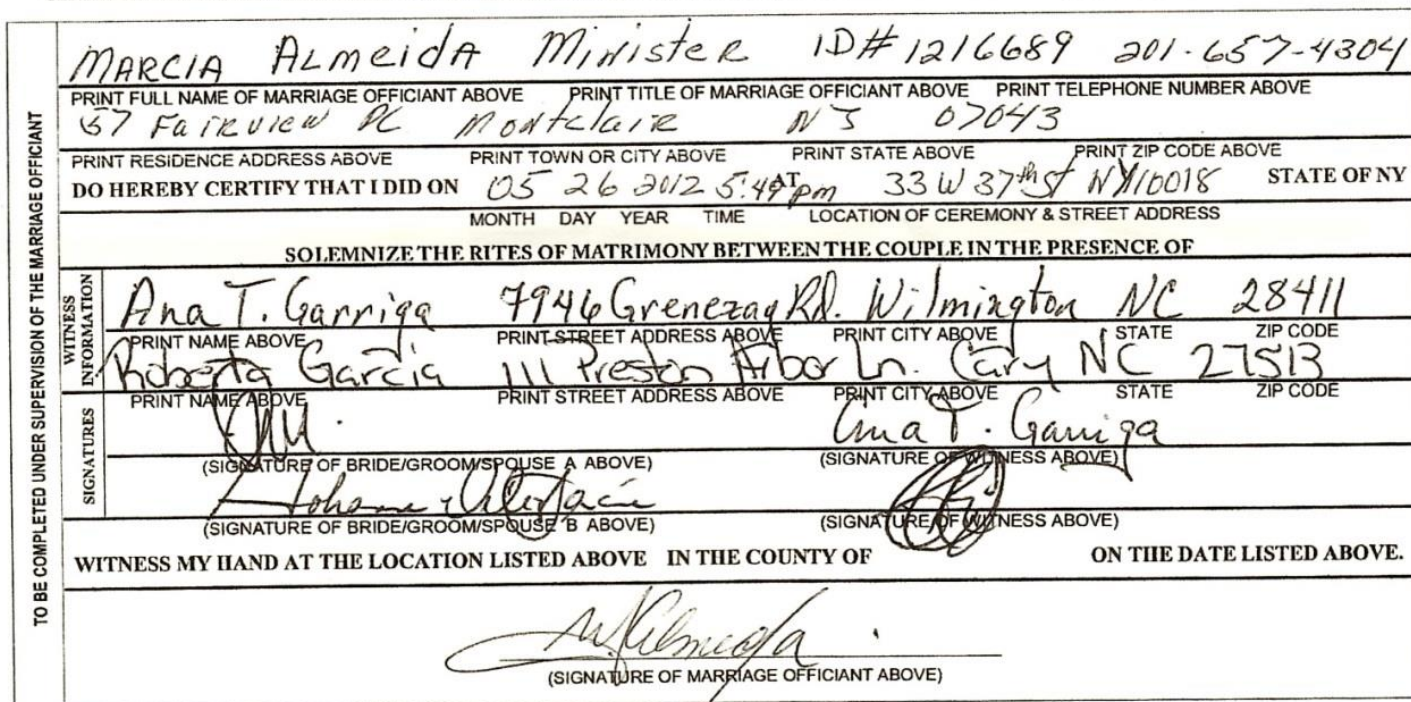 TO BE COMPLETED UNDER SUPERVISION OF THE MARRIAGE OFFICIANT
MARCIA ALmeidA Minister ID# 1216689 201-657-4304
PRINT FULL NAME OF MARRIAGE OFFICIANT ABOVE PRINT TITLE OF MARRIAGE OFFICIANT ABOVE PRINT TELEPHONE NUMBER ABOVE
57 Fairview PL Montclair NJ 07043
PRINT RESIDENCE ADDRESS ABOVE PRINT TOWN OR CITY ABOVE PRINT STATE ABOVE PRINT ZIP CODE ABOVE
DO HEREBY CERTIFY THAT I DID ON 05 26 2012 5:49 AT pm 33 W 37th St NY 10018 STATE OF NY
MONTH DAY YEAR TIME LOCATION OF CEREMONY & STREET ADDRESS
SOLEMNIZE THE RITES OF MATRIMONY BETWEEN THE COUPLE IN THE PRESENCE OF
WITNESS INFORMATION
Ana T. Garriga 7946 Rd. Wilmington NC 28411
PRINT NAME ABOVE PRINT STREET ADDRESS ABOVE PRINT CITY ABOVE STATE ZIP CODE
Garcia 111 Preston Arbor Ln. Cary NC 27513
PRINT NAME ABOVE PRINT STREET ADDRESS ABOVE PRINT CITY ABOVE STATE ZIP CODE
SIGNATURES
Ana T. Garriga
(SIGNATURE OF BRIDE/GROOM/SPOUSE A ABOVE) (SIGNATURE OF WITNESS ABOVE)
(SIGNATURE OF BRIDE/GROOM/SPOUSE B ABOVE) (SIGNATURE OF WITNESS ABOVE)
WITNESS MY HAND AT THE LOCATION LISTED ABOVE IN THE COUNTY OF ON THE DATE LISTED ABOVE.
M Almeida
(SIGNATURE OF MARRIAGE OFFICIANT ABOVE)